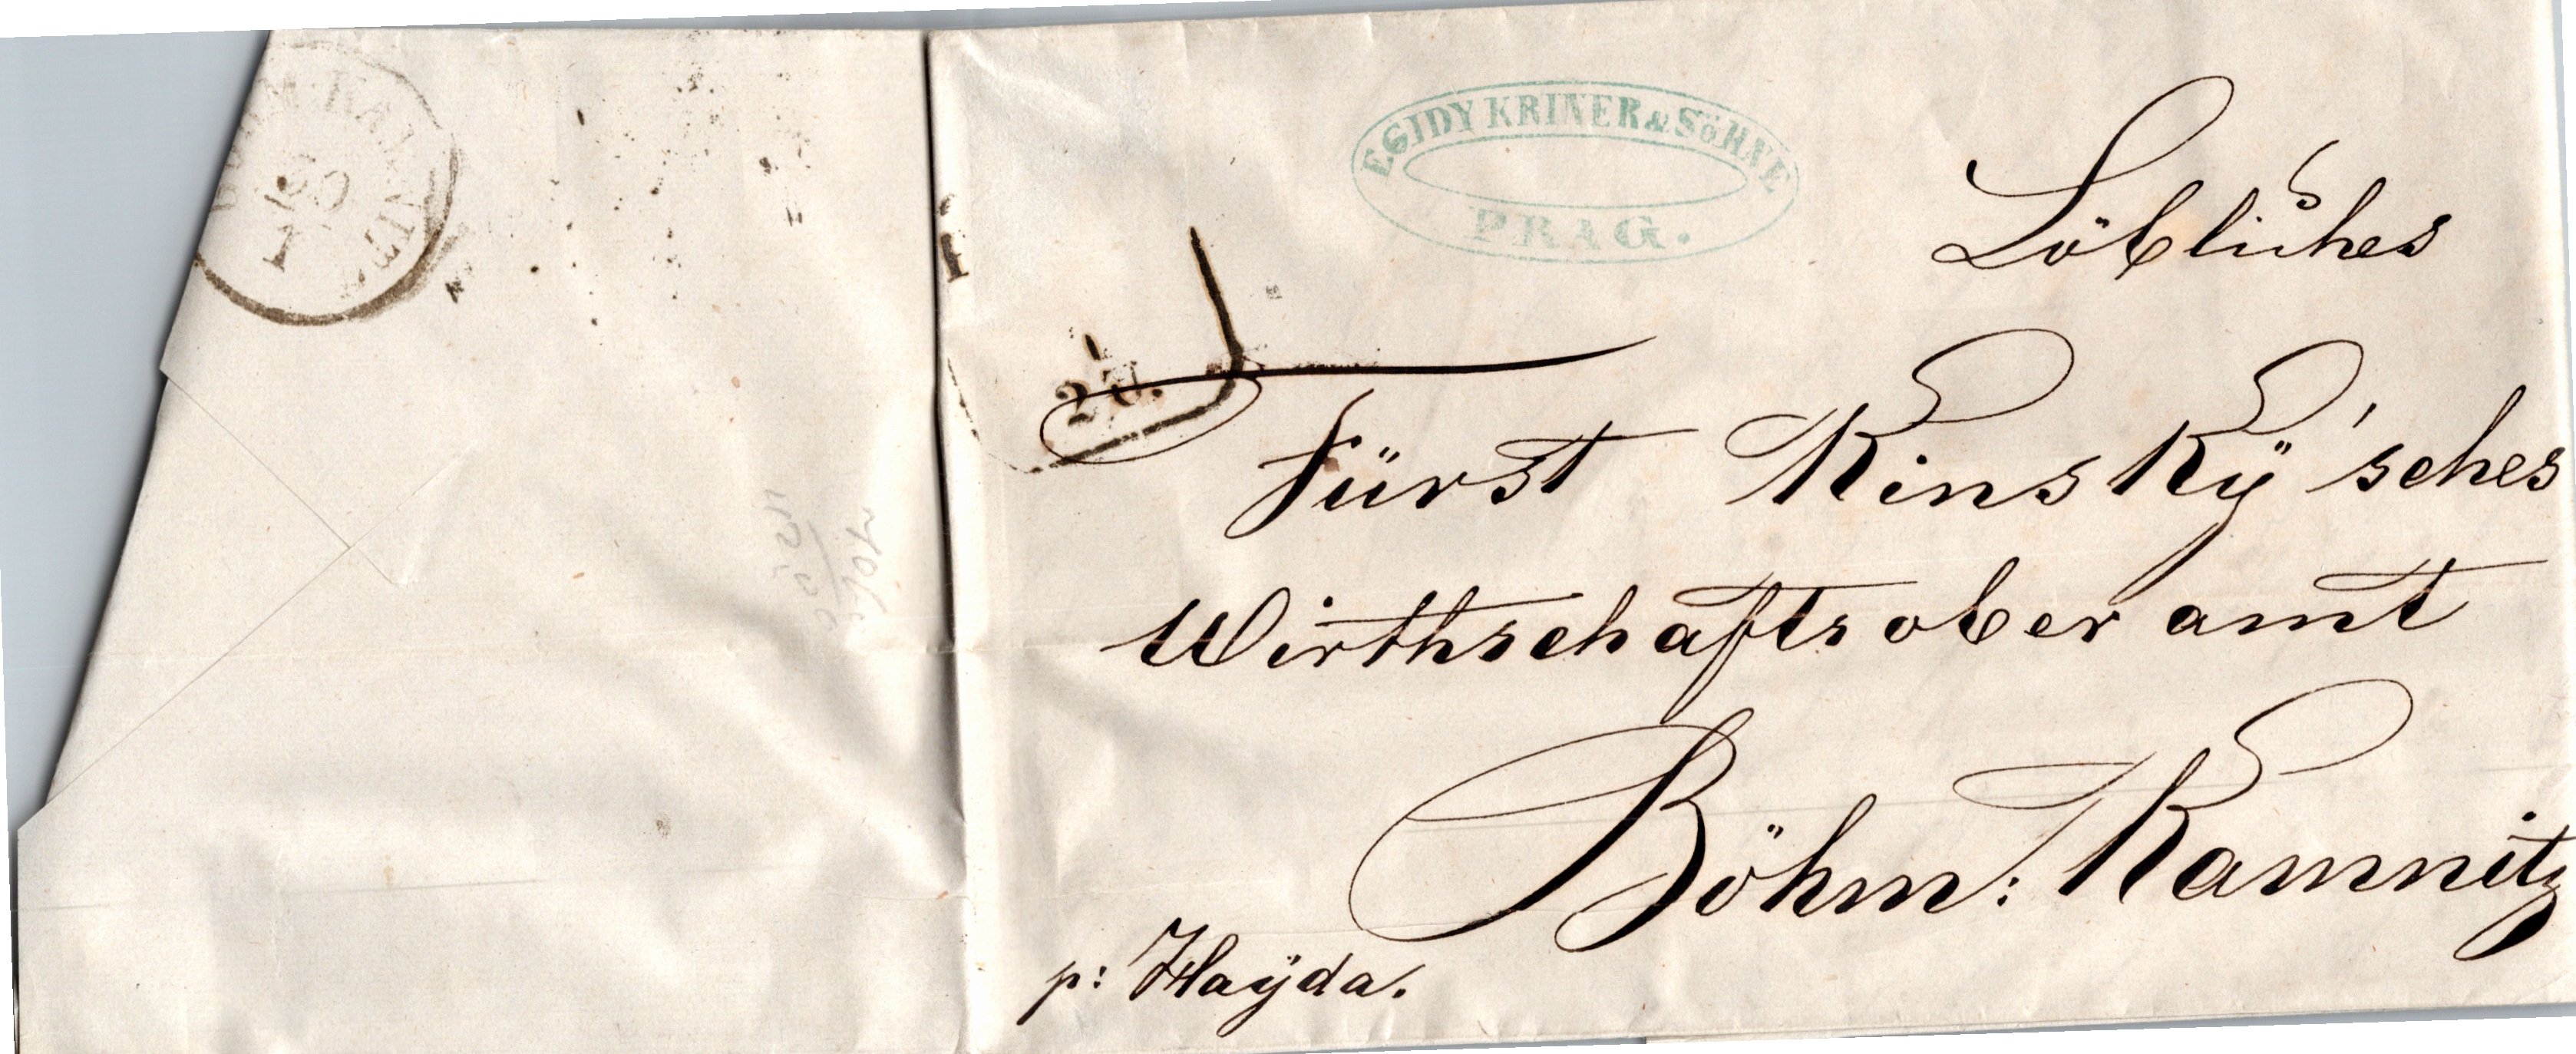 EGIDY KRINER & SÖHNE
PRAG.
Löbliches
Fürst Kinskÿ'sches
Wirthschaftsoberamt
Böhm: Kamnitz
p: Haÿda.